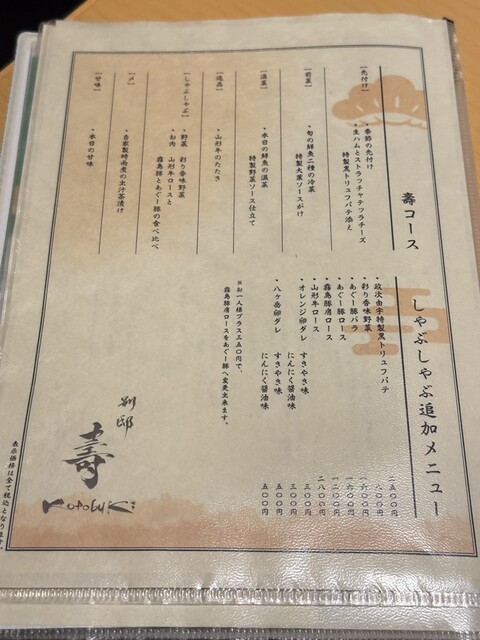 壽コース
【先付け】
・季節の先付け
・生ハムとストラッチャテッラチーズ
特製黒トリュフパテ添え
【前菜】
・旬の鮮魚二種の冷菜
特製大葉ソースがけ
【温菜】
・本日の鮮魚の温菜
特製野菜ソース仕立て
【逸品】
・山形牛のたたき
【しゃぶしゃぶ】
・野菜 彩り香味野菜
・お肉 山形牛ロースと
霧島豚とあぐー豚の食べ比べ
【〆】
・自家製時雨煮の出汁茶漬け
【甘味】
・本日の甘味
しゃぶしゃぶ追加メニュー
・政次由宇特製黒トリュフパテ
・彩り香味野菜
・あぐー豚バラ
・あぐー豚ロース
・霧島豚肩ロース
・山形牛ロース
・オレンジ卵ダレ すきやき味
にんにく醤油味
・八ヶ岳卵ダレ すきやき味
にんにく醤油味
二八〇〇円
三〇〇円
三〇〇円
五〇〇円
五〇〇円
※お一人様プラス三五〇円で、
霧島豚肩ロースをあぐー豚へ変更出来ます。
別邸
壽
KotobuKi
表示価格は全て税込となります。